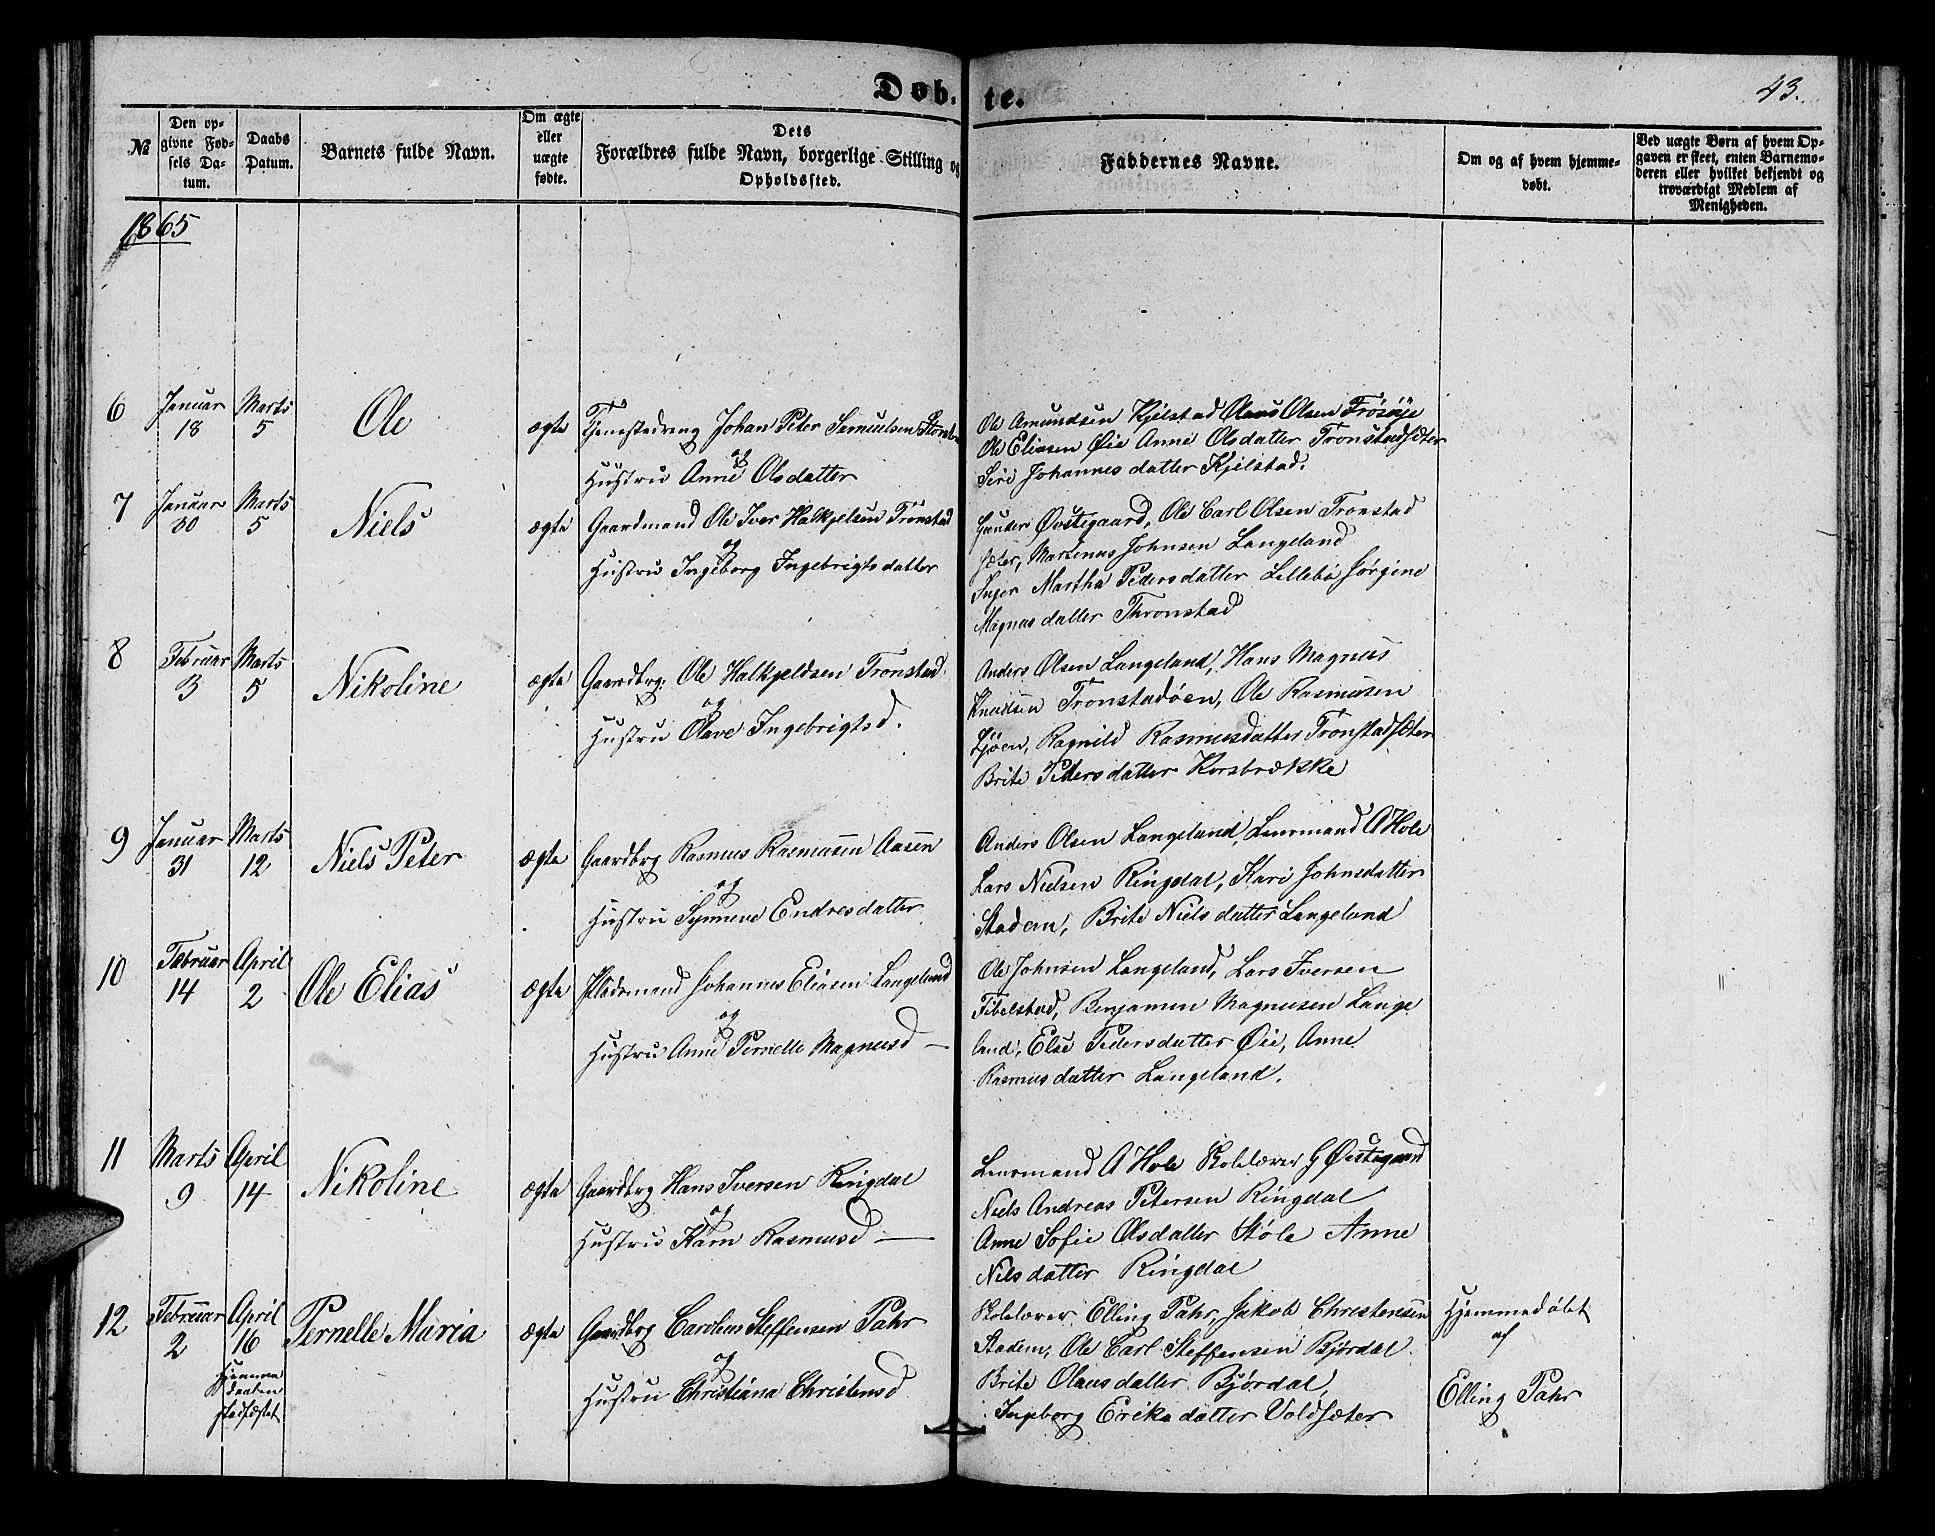 Døb-
te.
43.
№
Den op-
givne Fød-
sels Da-
tum.
Daabs
Datum.
Barnets fulde Navn.
Om ægte
eller
uægte
fødte.
Dets
Forældres fulde Navn, borgerlige Stilling og
Opholdssted.
Faddernes Navne.
Om og af hvem hjemme-
døbt.
Ved uægte Børn af hvem Op-
gaven er skeet, enten Barnemo-
deren eller hvilket bekjendt og
troværdigt Medlem af
Menigheden.
1865
6
Januar
18
Marts
5
Ole
ægte
Tjenestedreng Johan Peter Samuelsen
og
Hustru Anne Olsdatter
Ole Amundsen Kjelstad Olaus Olsen
Ole Eliasen Øie Anne Olsdatter Tronstadsæter
Siri Johannesdatter Kjelstad.
7
Januar
30
Marts
5
Niels
ægte
Gaardmand Ole Iver Halkjelsen Tronstad
og
Hustru Ingeborg Ingebrigtsdatter
Øvstegaard, Ole Carl Olsen Tronstad
sæter, Martinus Johnsen Langeland
Inger Martha Pedersdatter Lillebø Jørgine
Magnusdatter Thronstad
8
Februar
3
Marts
5
Nikoline
ægte
Gaardbrg. Ole Halkjeldsen Tronstad
og
Hustru Olave Ingebrigtsd.
Anders Olsen Langeland, Hans Magnus
Knudsen Tronstadøen, Ole Rasmusen
Ragnild Rasmusdatter Tronstadsæter
Brite Pedersdatter Korsbrekke
9
Januar
31
Marts
12
Niels Peter
ægte
Gaardbrg Rasmus Rasmusen Aasen
og
Hustru Synneve Endresdatter
Anders Olsen Langeland, Lensmand A Hole
Lars Nielsen Ringdal, Kari Johnsdatter
Stadem, Brite Nielsdatter Langeland
10
Februar
14
April
2
Ole Elias
ægte
Pladsmand Johannes Eliasen Langeland
og
Hustru Anne Pernelle Magnusd —
Ole Johnsen Langeland, Lars Iversen
Fibelstad, Benjamin Magnusen Lange
land, Else Pedersdatter Øie, Anne
Rasmusdatter Langeland.
11
Marts
9
April
14
Nikoline
ægte
Gaardbrg Hans Iversen Ringdal
og
Hustru Karn Rasmusd —
Lensmand A Hole Skolelærer G Øvstegaard
Niels Andreas Petersen Ringdal
Anne Sofie Olsdatter Støle Anne
Nilsdatter Ringdal
12
Februar
2
April
16
Hjemme
daaben
stadfæstet
Pernelle Maria
ægte
Gaardbrg Carolus Steffensen Pahr
og
Hustru Christiana Christensd
Skolelærer Elling Pahr, Jakob Christensen
Stadem, Ole Carl Steffensen Bjørdal
Brite Olausdatter Bjørdal,
Ingeborg Erikadatter Voldsæter
Hjemmedøbt
af
Elling Pahr